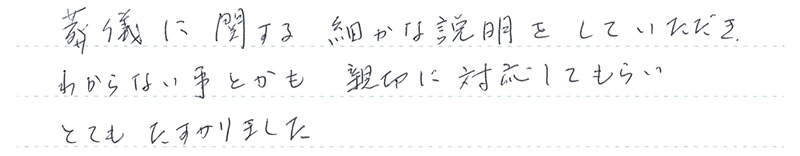 葬儀に関する細かな説明をしていただき、
わからない事とかも親切に対応してもらい
とてもたすかりました